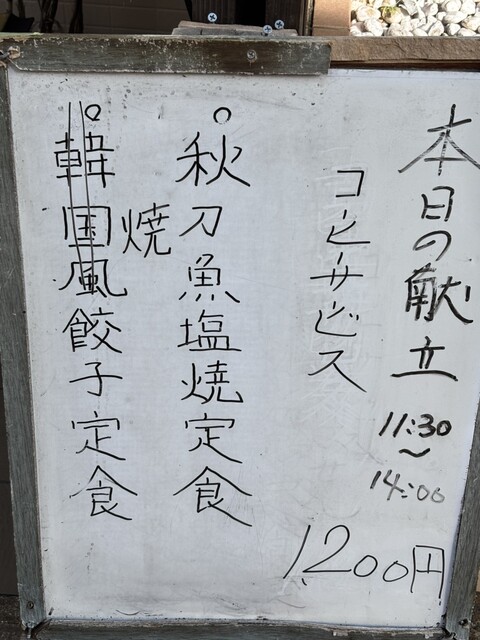 本日の献立
11:30
〜
14:00
コーヒーサービス
1,200円
○秋刀魚塩焼定食
焼
○韓国風餃子定食